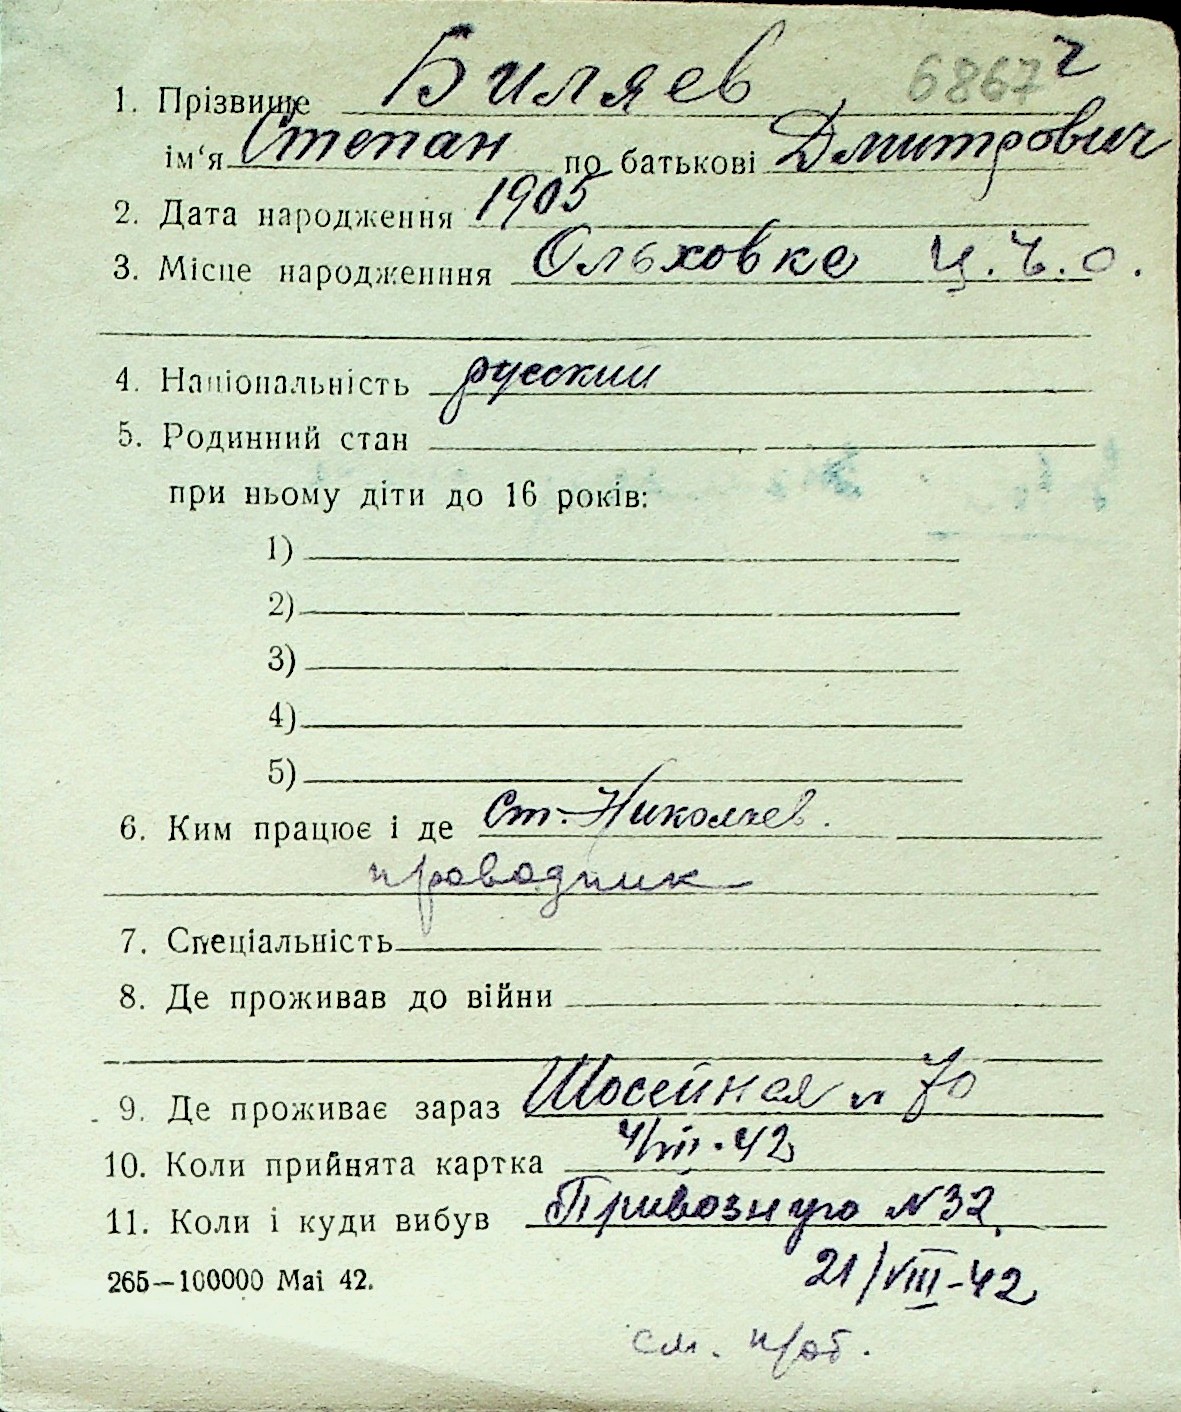 6867 ч
1. Прізвище Биляев
ім‘я Степан по батькові Дмитрович
2. Дата народження 1905
3. Місце народженння Ольховке Ц.Ч.О.
4. Національність русский
5. Родинний стан
при ньому діти до 16 років:
1)
2)
3)
4)
5)
6. Ким працює і де Ст. Николаев.
проводник
7. Спеціальність
8. Де проживав до війни
9. Де проживає зараз Шосейная № 70
10. Коли прийнята картка 4/VII-42
11. Коли і куди вибув Привозную №32
21/VIII-42
265—100000 Маі 42.
см. проб.